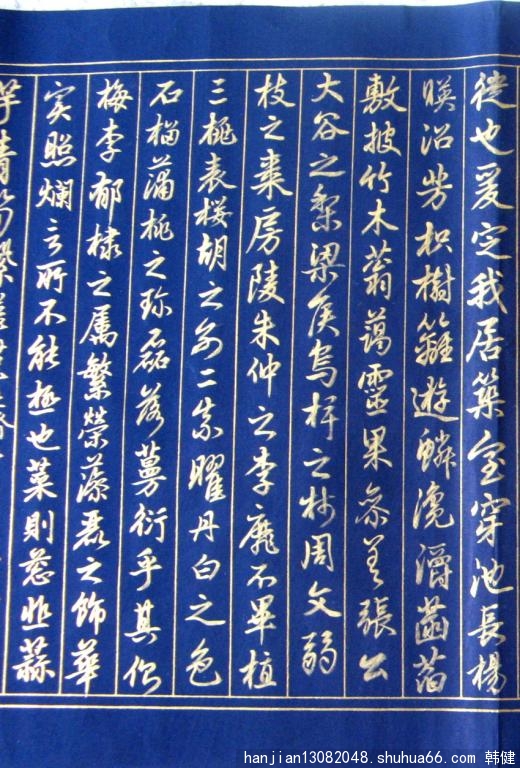 徒也爰定我居築室穿池長楊
暎沼芳枳樹籬遊鱗瀺灂菡萏
敷披竹木蓊藹靈果参差張公
大谷之梨梁侯烏椑之柿周文弱
枝之棗房陵朱仲之李靡不畢植
三桃表桜胡之別二柰曜丹白之色
石榴蒲桃之珎磊落蔓衍乎其側
梅李郁棣之属繁榮藻麗之飾華
実照爛言所不能極也菜則葱韭蒜
芋青筍紫薑
hanjian13082048.shuhua66.com 韩健